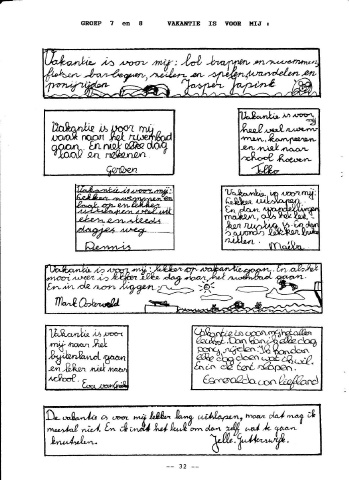 GROEP 7 en 8 VAKANTIE IS VOOR MIJ :
Vakantie is voor mij: bal trappen en zwemmen,
fietsen barbequen, zeilen en spelen, wandelen en
ponyrijden Jasper Japink
Vakantie is voor mij
vaak naar het zwembad
gaan. En niet elke dag
taal en rekenen
Gerben
Vakantie is voor
mij
heel veel zwem
men, kamperen
en niet naar
school hoeven
Jelko
Vakantie is voor mij:
Lekker zwemmen en
laat op en lekker
uitslapen
eten en steeds
dagjes weg
Dennis
Vakantie is voor mij:
Lekker uitslapen.
En dan wandelingen
maken, als het lek-
ker rustig is. en dan
's avonds lekker buiten
zitten. Maika
Vakantie is voor mij: lekker op vakantie gaan. En als het
mooi weer is elke dag naar het zwembad gaan.
En in de zon liggen
Mark Oosterveld
Vakantie is voor
mij naar het
buitenland gaan
en leker niet naar
school.
Eva van
Vakantie is voor mij het aller
leukst. Dan kan ik elke dag
pony rijden. Ik kan dan
elke dag doen wat ik wil.
En in de tent slapen.
Esmeralda van Liefland
De vakantie is voor mij lekker lang uitslapen, maar dat mag ik
meestal niet. En ik vindt het leuk om dan zelf wat te gaan
knutselen. Jelle Gutterswijk.
-- 32 --